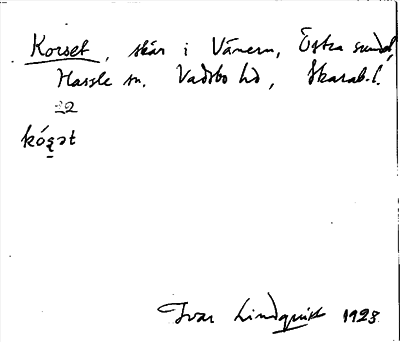 Korset, skär i Vänern, Östra sund,
Hassle sn. Vadsbo hd, Skarab. l.
22
kó̱ʂət
Ivar Lindquist 1923